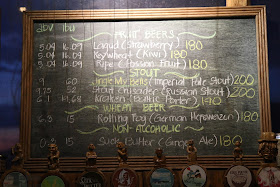 abv ibu FRUIT BEERS
5.04 16.09 Liquid (Strawberry) 180
5.04 16.09 Keywheat (Kiwi) 180
5.04 16.09 Ripe (Passion Fruit) 180
STOUT
9 60 Jingle My Bells (Imperial Pale Stout) 200
9.75 32 Stout Crusader (Russian Stout) 200
6.1 Kraken (Baltic Porter) 190
WHEAT BEER
6.3 15 Rolling Fog (German Hefeweizen) 180
NON-ALCOHOLIC
0.4 15 Suds Butter (Ginger Ale) 180